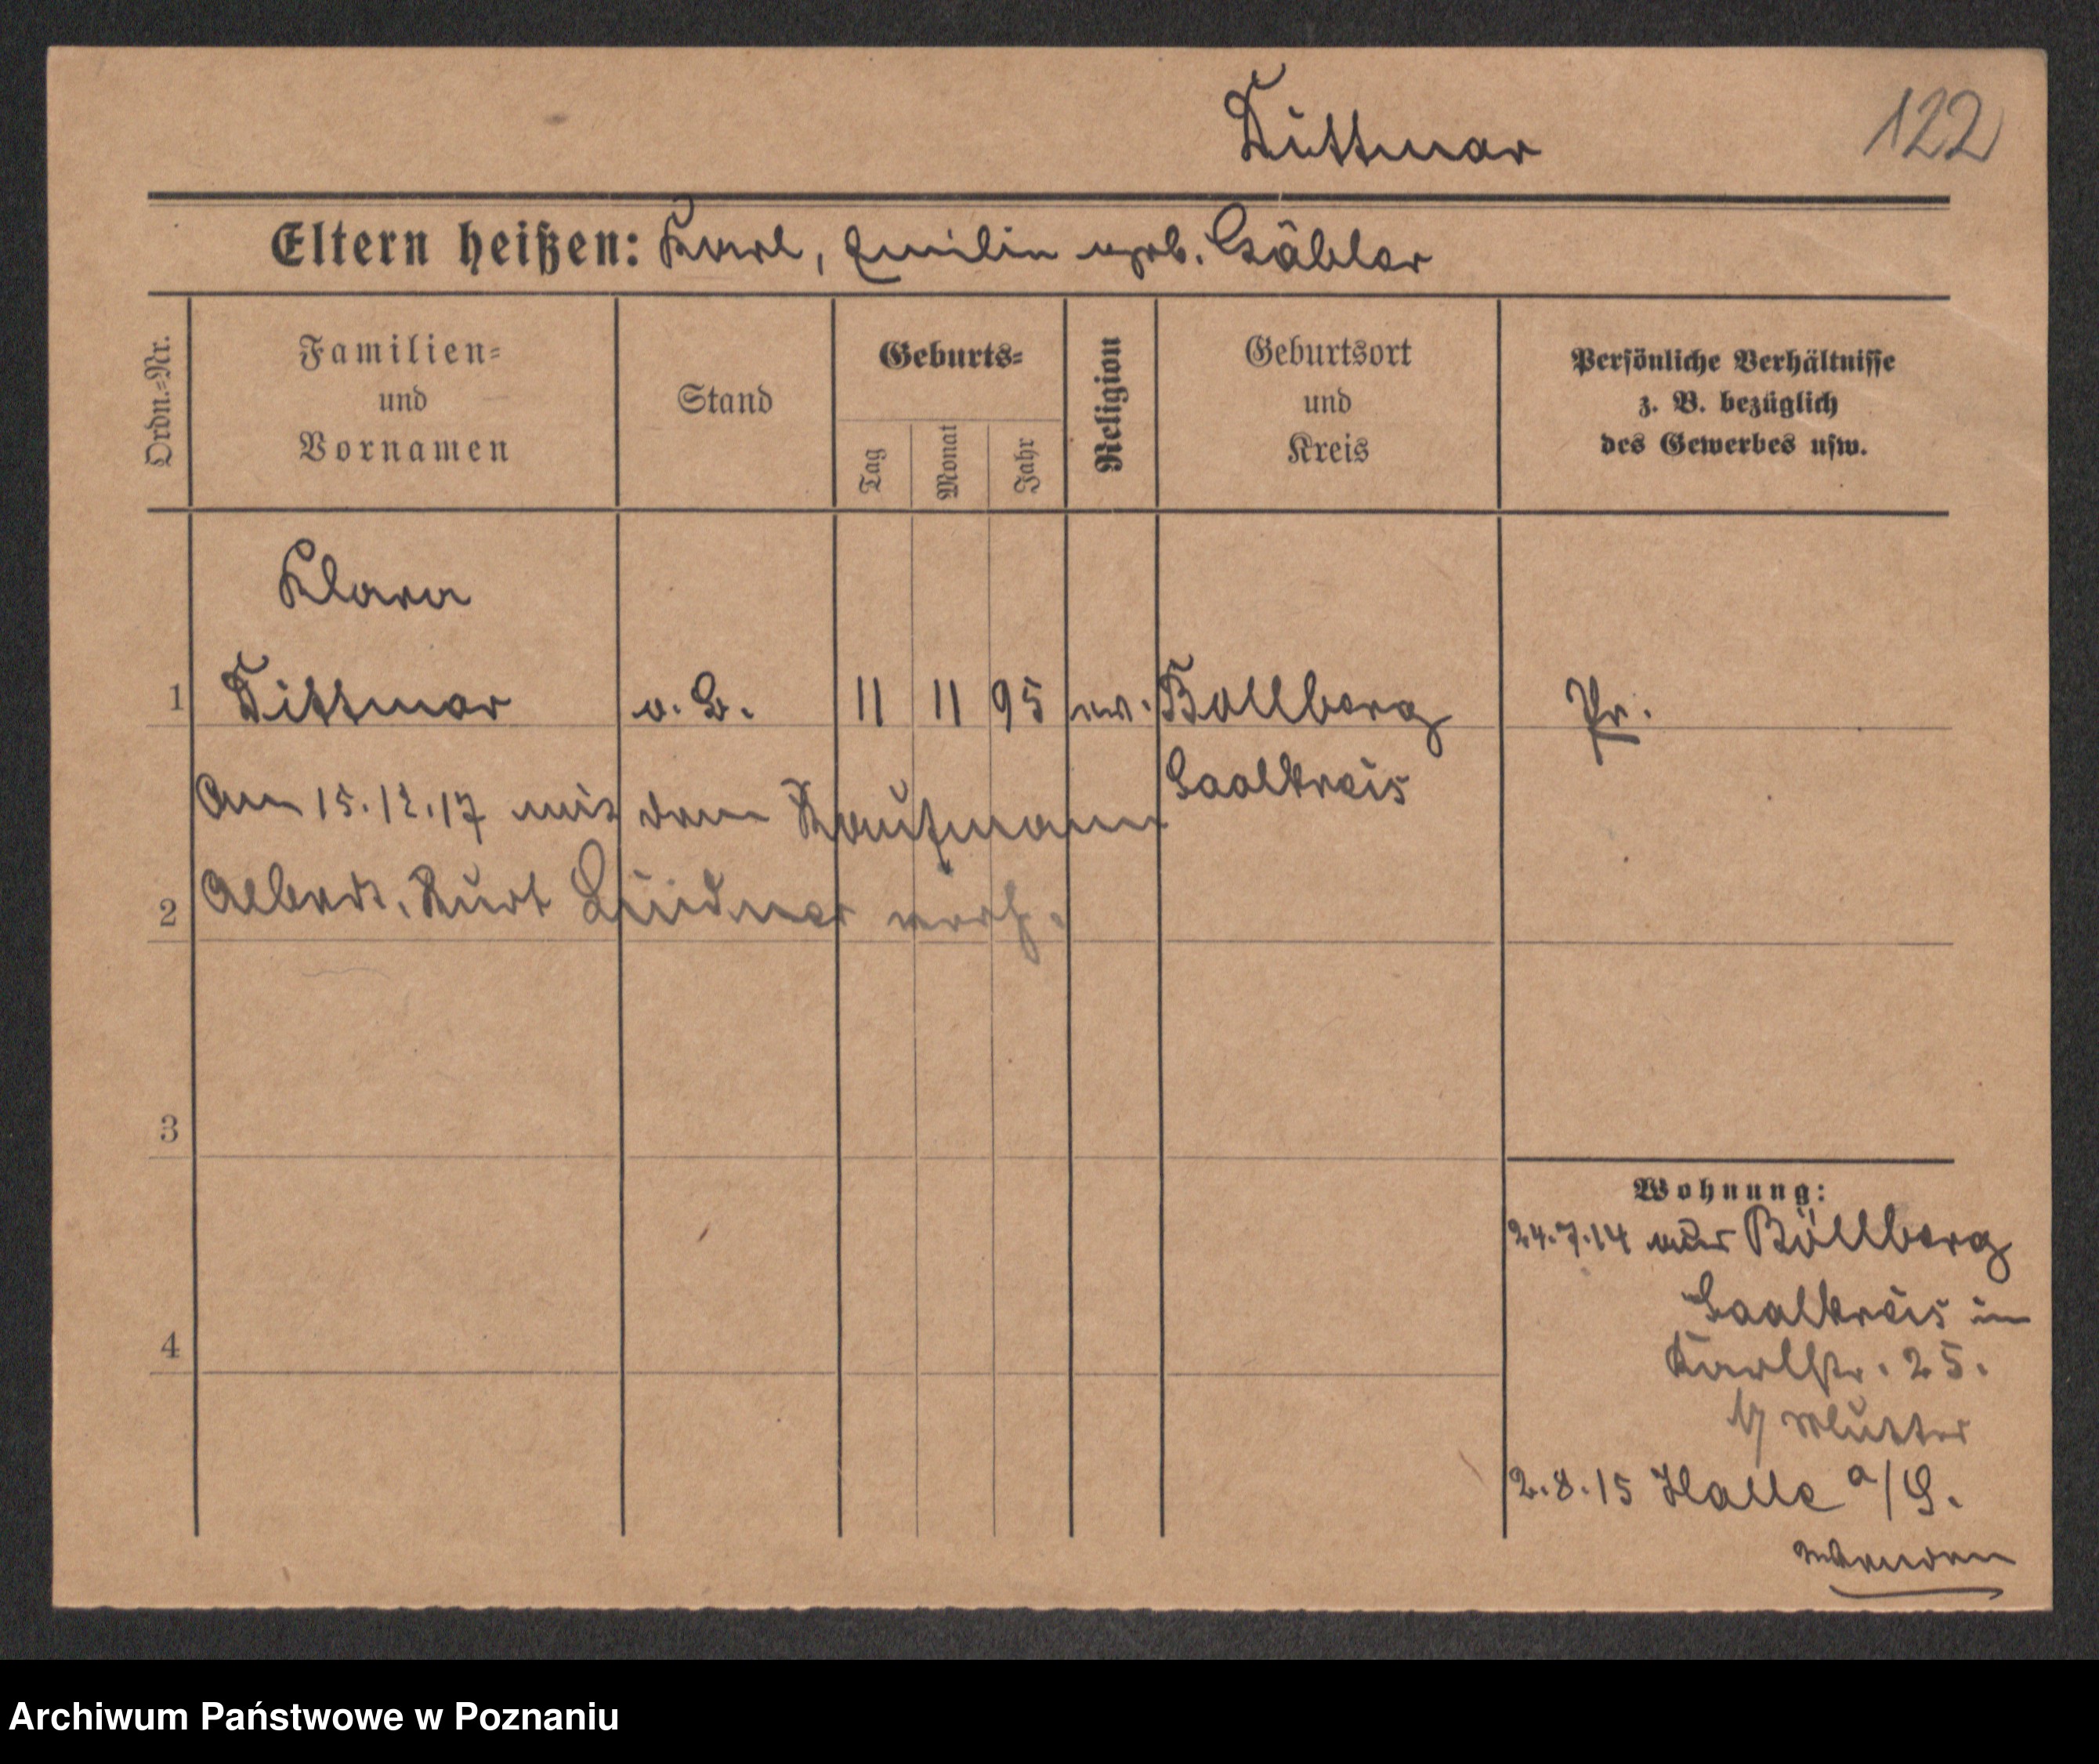 Dittmar
122
Eltern heißen: Karl, Emilie geb. Gäbler
Ordn.=Nr.
Familien=
und
Vornamen
Stand
Geburts=
Tag
Monat
Jahr
Religion
Geburtsort
und
Kreis
Persönliche Verhältnisse
z. B. bezüglich
des Gewerbes usw.
Klara
1 Dittmar o. G. 11 11 95 ev. Bollberg Pr.
Saalkreis
Am 15.12.17 mit dem Kaufmann
2 Albert, Kurt verh.
3
4
Wohnung:
24.7.14 aus Böllberg
Saalkreis in
Karlstr. 25.
b/ Mutter
2.8.15 Halle a/S.
wenden
Archiwum Państwowe w Poznaniu